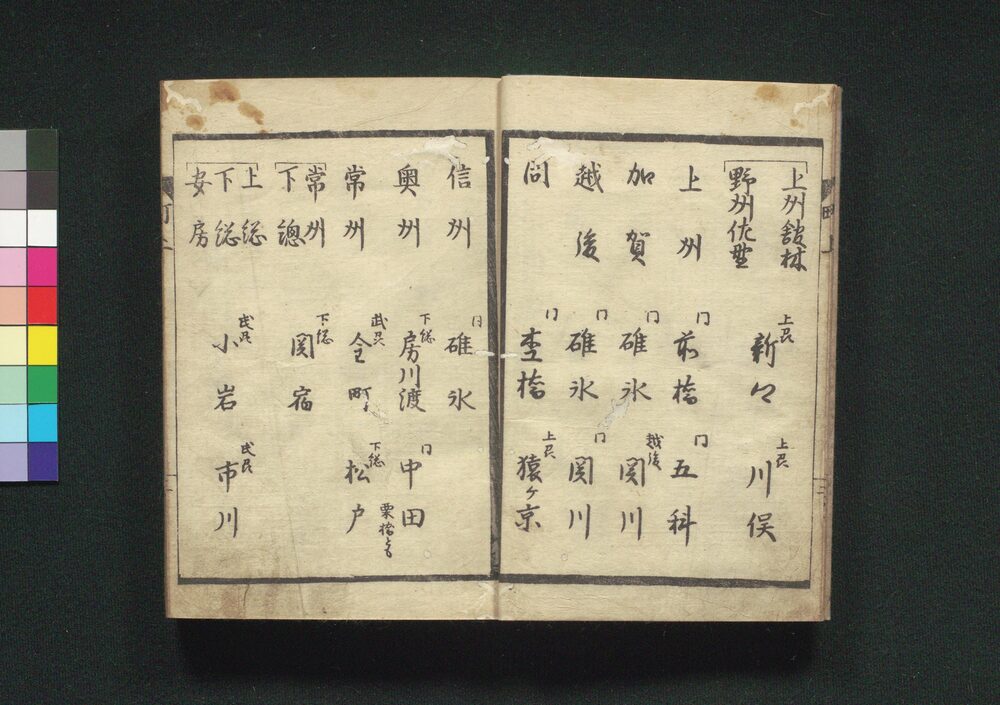 上州舘林
野州佐野
上州 新々 上州 川俣
上州 同 前橋 同 五科
加賀 同 碓氷 越後 関川
越後 同 碓氷 同 関川
同 同 杢橋 上州 猿ヶ京
信州 同 碓氷
奥州 下総 房川渡 同 中田 栗橋とも
常州 武州 金町 下総 松戸
常州
下總 下総 関宿
上総
下総 武州 小岩 武州 市川
安房